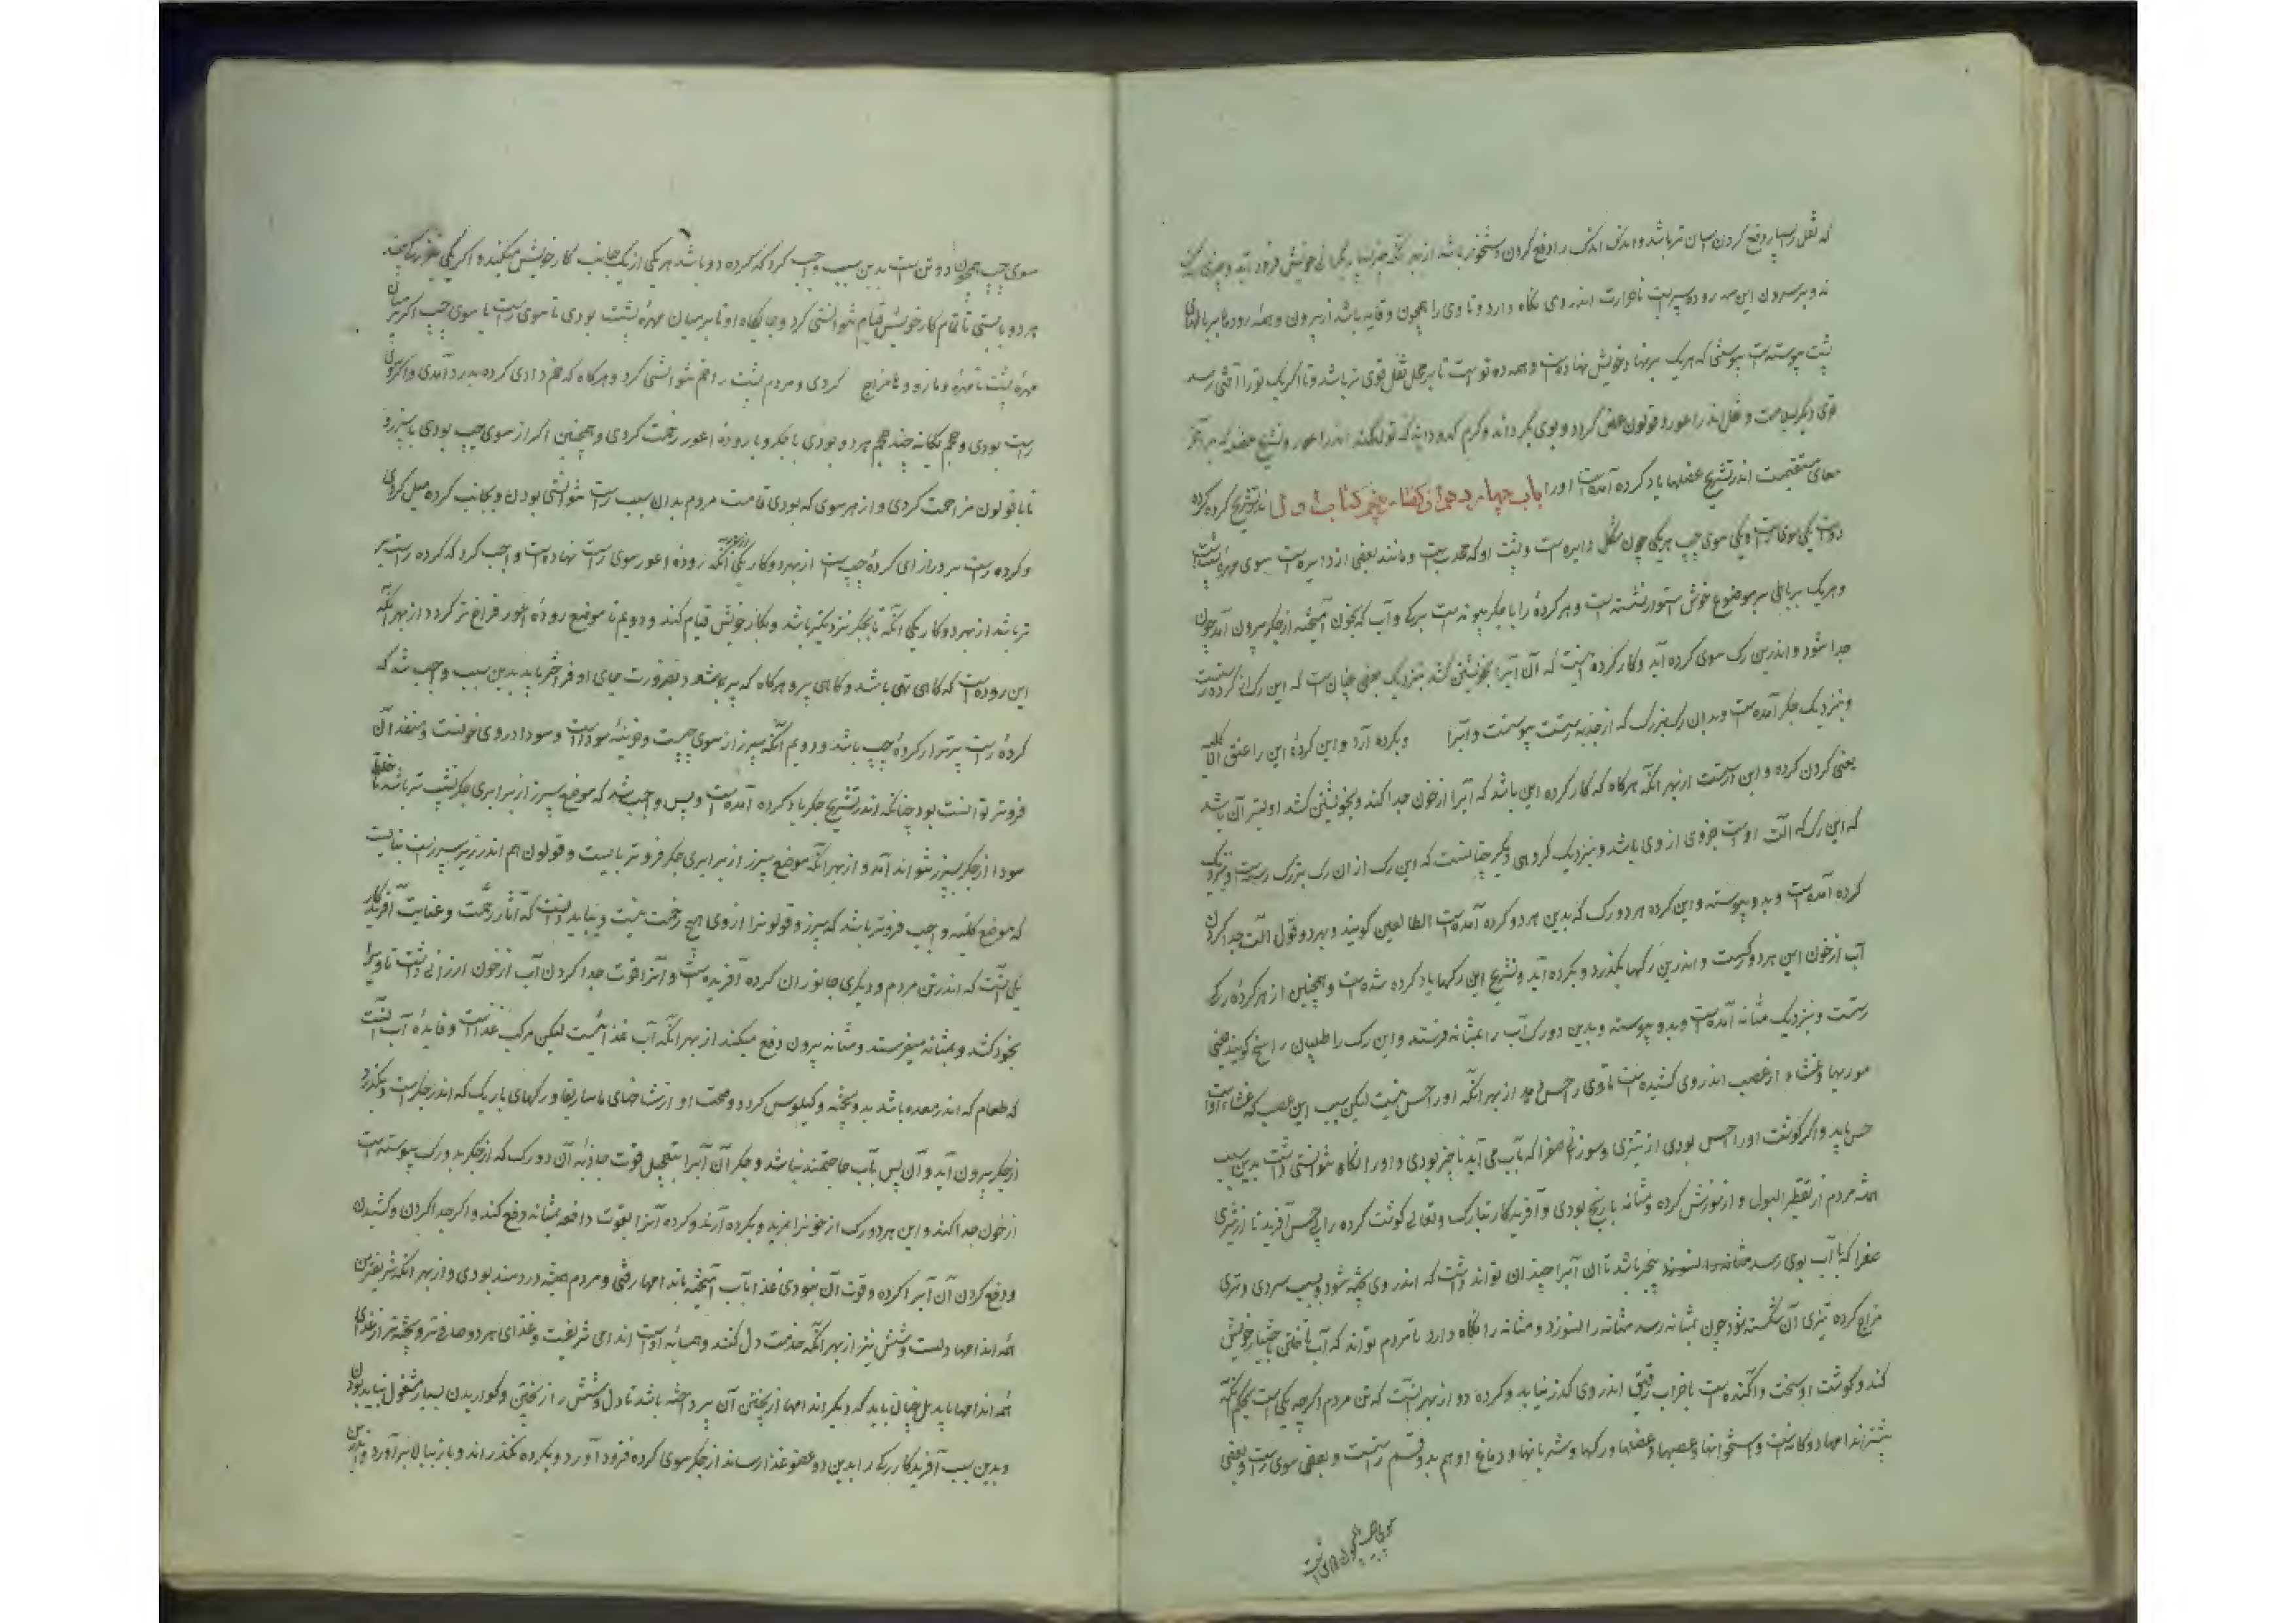 که ثقل بسیار دفع کردن آسان تر باشد و اندک اندک را دفع کردن دشخوار باشد از بهر آنکه چیز بسیار بگرانی خویش فرود آید و چیزی سبک
ند و بر بیرون این سه روده پیه است تا حرارت اندر وی نگاه دارد و تا وی را همچون وقایه باشد از بیرون و همه رودها بر باطهای
پشت پیوسته است پیوستنی که هر یک بر نهاد خویش نهاده است و همه ده توست تا بر حمل ثقل قوی تر باشد و تا اگر یک تو را آفتی رسد
توی دیگر بسلامت و ثقل اندر اعور و قولون عفن گردد و بوی بگرداند و کرم کدودانه تولد کند اندر اعور و تشریح عضله که بر آخر
معای مستقیمست اندر تشریح عضلها یاد کرده آمده است اورا باب چهاردهم از گفتار پنجم کتاب اول اندر تشریح کرده کرده
دو است یکی سوی راست و یکی سوی چپ هر یکی چون شکل دایره است و پشت او که محدب است و مانند بعضی از دایره است سوی مهرهٔ پشت است
و هر یک برباطی بر موضع خویش استوار نشسته است و هر کرده را با جکر پیوند است برکی و آب که بخون آمیخته از جکر بیرون آمد چون
جدا شود و اندرین رک سوی کرده آید و کار کرده اینست که آن آبرا بخویشتن کشد بنزدیک بعضی چنان است که این رک از کرده رستست
و بنزدیک جکر آمده است و بدان رک بزرک که از حدبه رستست پیوستست و آبرا و بکرده آرد و این کردهٔ این را عنق الکلیه
یعنی کردن کرده و این آنست از بهر آنکه هر کاه که کار کرده این باشد که آبرا از خون جدا کند و بخویشتن کشد اولیتر آن باشد
که این رک که آلت اوست جزوی از وی باشد و بنزدیک کروهی دیگر چنانست که این رک از آن رک بزرک رسته است و بنزدیک
کرده آمده است و بدو پیوسته و این کرده هر دو رک که بدین هر دو کرده آمده است الطالعین کویند و بهر دو قول آلت جدا کردن
آب از خون این هر دو رکست و اندرین رکها بگذرد و بکرده آید و تشریح این رکها یاد کرده شده است و همچنین از هر کردهٔ رکی
رستست و بنزدیک مثانه آمده است و بدو پیوسته و بدین دو رک آب را بمثانه فرستد و این رک را طبیبان برابخ کویند یعنی
موریها و غشاء از عصب اندر وی کشیده است تا وی را حس بود از بهر آنکه اورا حس نیست لیکن بسبب این عصب که غشاء اوست
حس یابد و اگر کوشت اورا حس بودی از تیزی و سوزانی صفرا که بآب می آید ناچیز بودی و اورا نگاه نتوانستی داشت بدین سبب
همه مردم از تقطیر البول و از سوزش کرده و مثانه بارنج بودی و آفریدکار تبارک و تعالی کوشت کرده را بی حس آفرید تا از تیزی
صفرا که با آب بوی رسد بیخبر باشد تا آن آبرا چندان تواند داشت که اندر وی پخته شود و بسبب سردی و تری
مزاج کرده تیزی آن شکسته شود چون بمثانه رسد مثانه را نسوزد و مثانه را نگاه دارد تا مردم تواند که آب تاختن باختیار خویش
کند و کوشت او سخت و آکنده است تا خراب رقیق اندر وی کذر نیابد و کرده دو از بهر آنست که تن مردم اگر چه یکی است بحکم آنکه
بیشتر اندامها دوکانه است و استخوانها و عصبها و عضلها و رکها و شریانها و دماغ او هم بدو قسم راستست و بعضی سوی راست و بعضی
سوی چپ همچون دو تن است
سوی چپ همچون دو تن است بدین سبب واجب کرد که کرده دو باشد هر یکی از یک جانب کار خویش میکنند و اگر یکی
هر دو بایستی تا تمام کار خویش قیام نتوانستی کرد و جایگاه او تا بر میان مهرهٔ پشت بودی تا سوی راست یا سوی چپ اگر بر میان
مهرهٔ پشت تا مهرهٔ و مازو و کردی و مردم پشت را خم نتوانستی کرد و هرکاه که خم دادی کرده بدرد آمدی و اگر سوی
راست بودی و حجم یکانه چند حجم هر دو بودی با جکر و با رودهٔ اعور زحمت کردی و همچنین اگر از سوی چپ بودی با سپرز و
تا با قولون مزاحمت کردی و از هر سوی که بودی قامت مردم بدان سبب راست نتوانستی بودن و بجانب کرده میل کردی
و کرده راست بر درازای کردهٔ چپ است از بهر دو کار یکی آنکه رودهٔ اعور سوی راست نهاده است واجب کرد که کرده راست بر
تر باشد از بهر دو کار یکی آنکه تا بجکر نزدیکتر باشد و بکار خویش قیام کند و دویم تا موضع رودهٔ اعور فراخ تر کردد از بهر آنکه
این روده است که کاهی تهی باشد و کاهی پر و هرکاه که پر باشد بضرورت جای او فراختر باید بدین سبب واجب شد که
کردهٔ راست برتر از کردهٔ چپ باشد و دویم آنکه سپرز از سوی چپست و خزینهٔ سوداست و سودا در وی خونست و منفذ آن
فروتر توانست بود چنانکه اندر تشریح جکر یاد کرده آمده است و پس واجب شد که موضع سپرز از برابری جکر نشیب تر باشد تا خلط
سودا از جکر بسپرز نتواند آمد و از بهر آنکه موضع سپرز از برابری جکر فروتر بایست و قولون هم اندر زیر سپرز است ببایست
که موضع کلیه واجب فروتر باشد که سپرز و قولونرا از وی هیچ زحمت نیست و بباید دانست که آثار رحمت و عنایت آفریدکار
یکی آنست که اندر تن مردم و دیگری جانوران کرده آفریده است و آنرا قوت جدا کردن آب از خون ارزانی داشت تا وی را
بخود کشد و بمثانه میفرستد و مثانه بیرون دفع میکند از بهر آنکه آب غذا نیست لیکن مرکب غذاست و فایدهٔ آب آنست
که طعام که اندر معده باشد بدو پخته و کیلوس کردد و از شاخهای ماساریقا و رکهای باریک که اندر جکر است بگذرد
از جکر بیرون آید و آن پس بآب حاجتمند نباشد و جکر آن آبرا بتعجیل قوت جاذبه آن دو رک که از جکر بدو رک پیوسته است
از خون جدا کند و این هر دو رک از خونرا بمزید و بکرده آرند و کرده آنرا بقوت دافعه بمثانه دفع کند و اگر جدا کردن و کشیدن
و دفع کردن آن آبرا کرده و قوت آن نبودی غذا بآب آمیخته باندامها رفتی و مردم همیشه دردمند بودی و از بهر آنکه شریفترین
همه اندامها دلست و شش نیز از بهر آنکه خدمت دل کند و همسایهٔ اوست اندامی شریفست و غذای هر دو صافی تر و پخته تر از غذای
همه اندامها باید بل چنان باید که دیگر اندامها از پختن آن پرداخته باشد تا دل و شش را از پختن و کواریدن بسیار مشغول نباید بود
و بدین سبب آفریدکار رکی را بدین دو عضو غذا رساند از جکر سوی کرده فرود آورد و بکرده بگذراند و باز ببالا برآورد